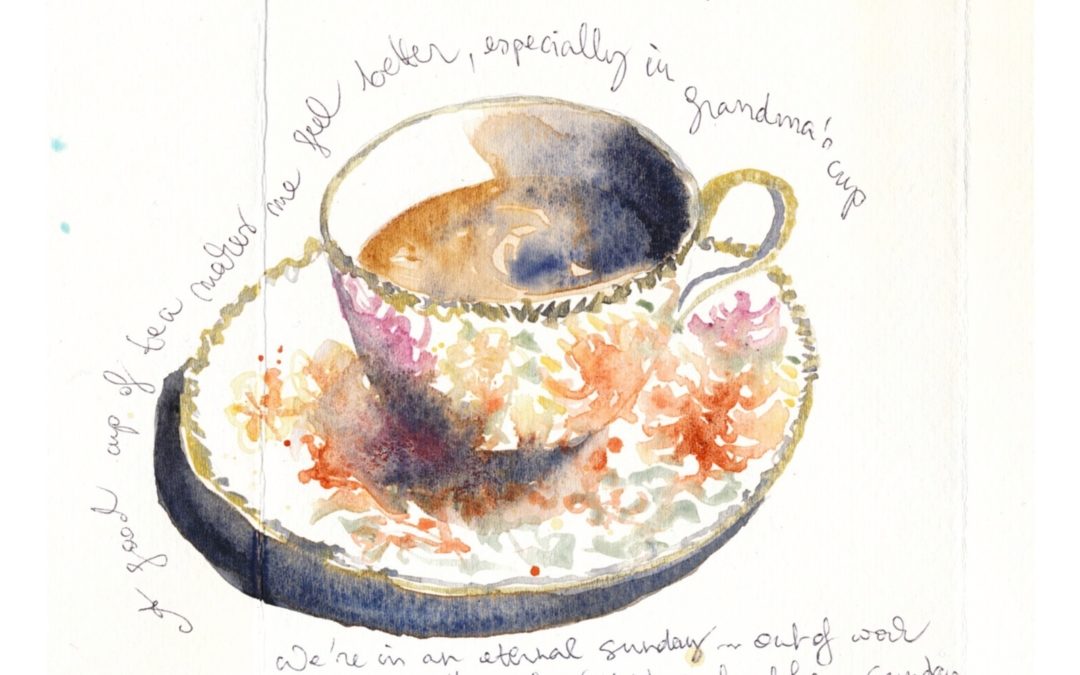 A good cup of tea makes me feel better, especially in grandma's cup
We're in an eternal sunday ~ out of work
sunday